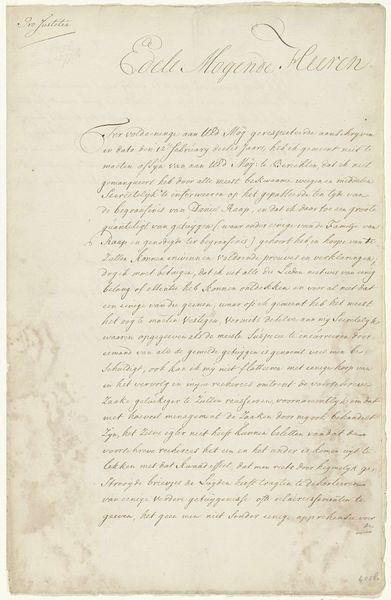 Pro Justitia
Edele Mogende Heeren
Ter voldoeninge aan UEd Mog. gerespecteerde aanschryven
in dato den 12e february deeses Jaars, heb ik gemeent niet te
moeten afsyn van aan UEd Mog: te berichten, dat ik niet
gemanqueert heb door alle meest bekwaame weegen en middelen
Secretelyk te informeeren op het gepasseerde ten tyde van
de begraafenis van Daniel Raap, en dat ik daar toe een groote
quantiteyt van getuygen (waar onder eenige van de Familje van
Raap en genodigde ter begraafenis) gehoort heb in hoope van te
Zullen konnen inwinnen voldoende preuves en verklaaringen,
dog ik moet betuygen, dat ik uit alle die Lieden niets van eenig
belang of essentie heb konnen ontdekken en voor al niet dat
een eenige van die geenen, waar op ik gemeent heb het meest
het oog te moeten vestigen, vermits deselve aan my Secretelyk
waaren opgegeeven als de meeste Suspecte te
iemand van alle de gemelde getuygen is genoemt veel min be-
Schuldigt, ook kan ik my niet flatteeren met eenige hoop van
in het vervolg in myne recherches omtrent de voorschreeve
Zaake gelukkiger te Zullen reusseeren, voornamentlyk om dat
met hoeveel menagement de Zaaken door my ook behandelt
Zyn, het Zelve egter niet heeft kunnen beletten van dat de
voorschreve recherches het een en het ander is komen uyt te
lekken met dat kwaad effect, dat men reets door heymelyk ge-
Strooyde briefjes de Luyden heeft tragten te
van eenige verdere getuygenisse ofte
te
geeven, het geen men niet Sonder eenige apprehensie voor
de